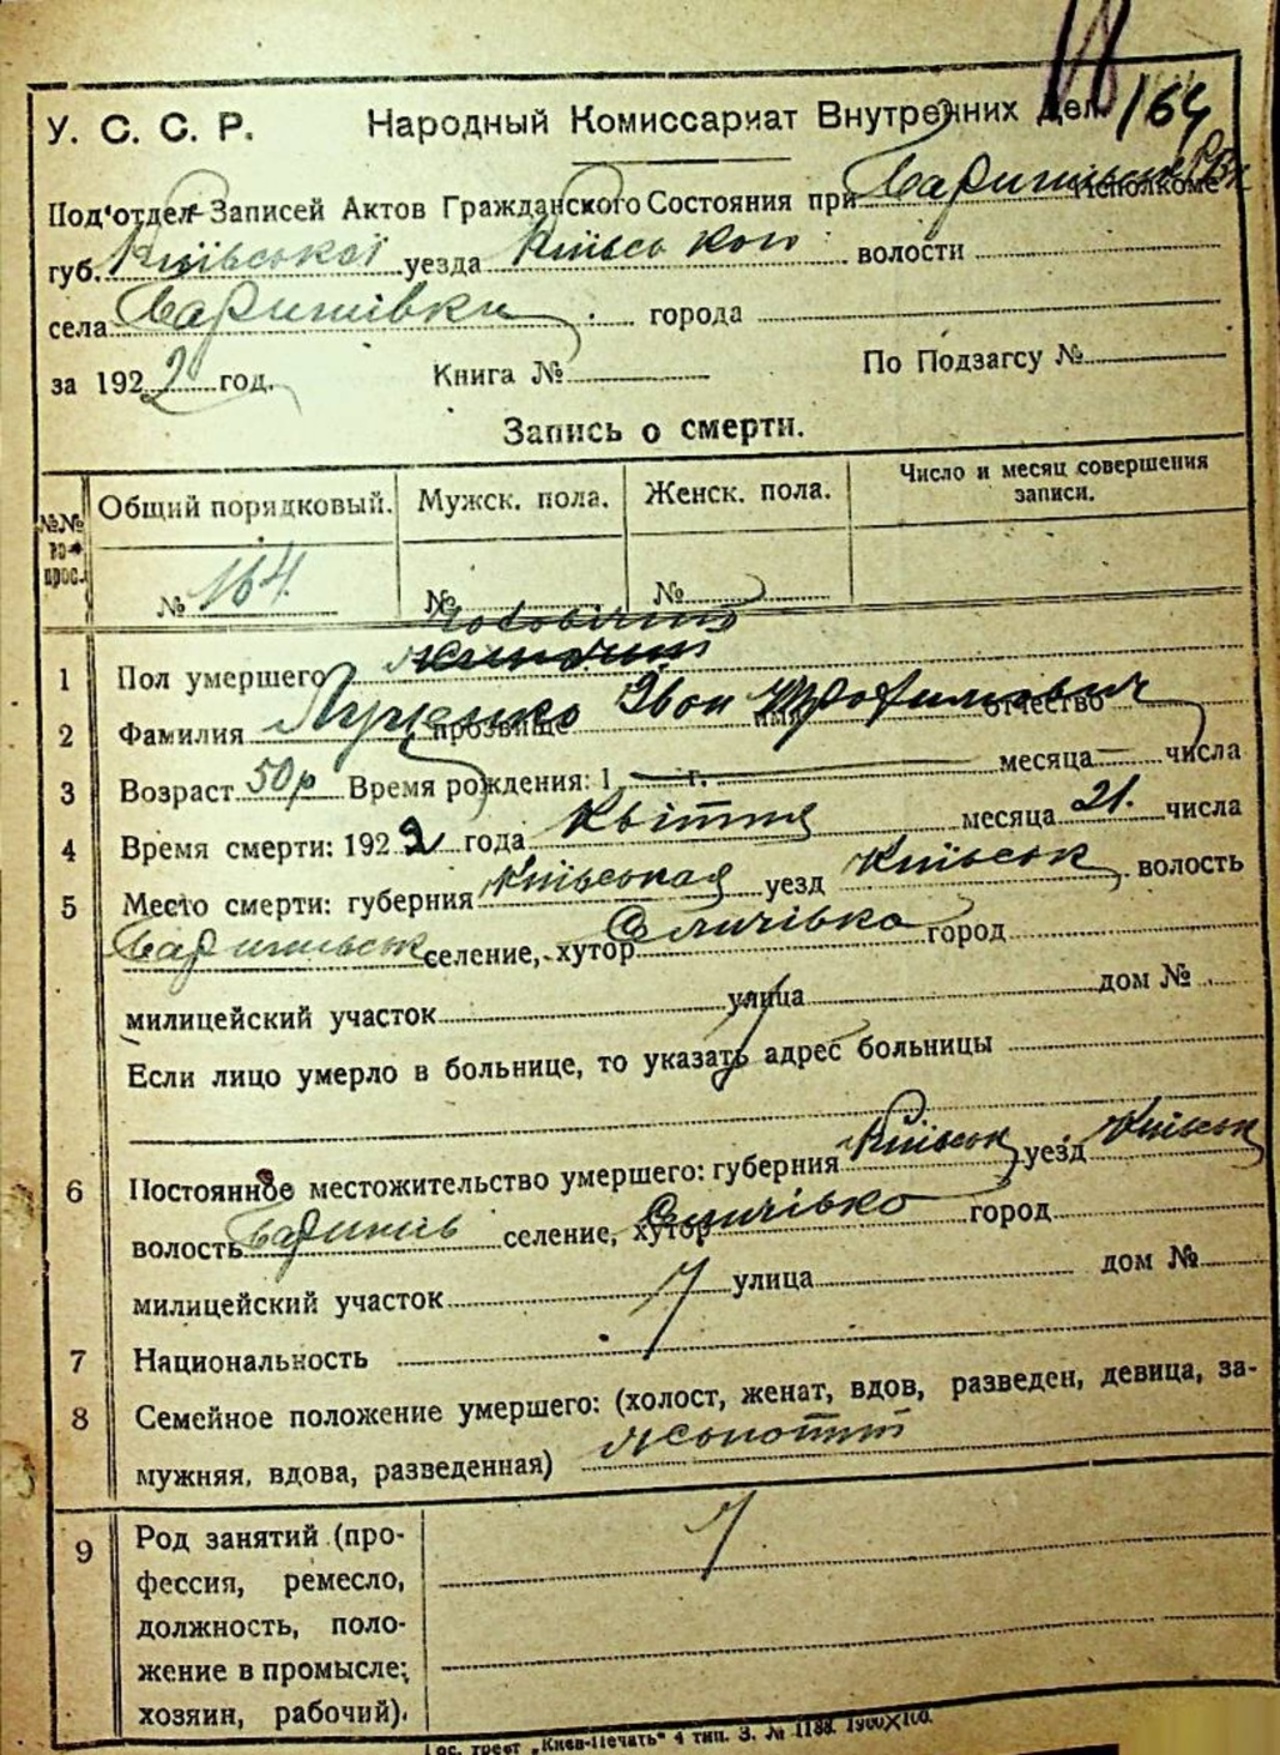 164
У. С. С. Р. Народный Комиссариат Внутренних Дел
Под'отдел Записей Актов Гражданского Состояния при Баришівськ РВк Исполкоме
губ. Київської уезда Київського волости
села Баришівки города
за 1922 год. Книга № По Подзагсу №
Запись о смерти.
№№ вопрос. Общий порядковый. Мужск. пола. Женск. пола. Число и месяц совершения записи.
№ 164. № №
чоловічий
1 Пол умершего
2 Фамилия Луценко прозвище Іван имя Трофимович отчество
3 Возраст 50 р Время рождения: 1 г. месяца числа
4 Время смерти: 1922 года Квітня месяца 21. числа
5 Место смерти: губерния Київськая уезд Київськ волость
Баришівськ селение, хутор Селичівка город
милицейский участок улица дом №
Если лицо умерло в больнице, то указать адрес больницы
6 Постоянное местожительство умершего: губерния Київськ уезд Київськ
волость Баришів селение, хутор Селичівка город
милицейский участок улица дом №
7 Национальность
8 Семейное положение умершего: (холост, женат, вдов, разведен, девица, за-
мужняя, вдова, разведенная) жонатий
9 Род занятий (про-
фессия, ремесло,
должность, поло-
жение в промысле;
хозяин, рабочий).
Гос. трест „Киев-Печать" 4 тип. З. № 1188. 1900Х100.